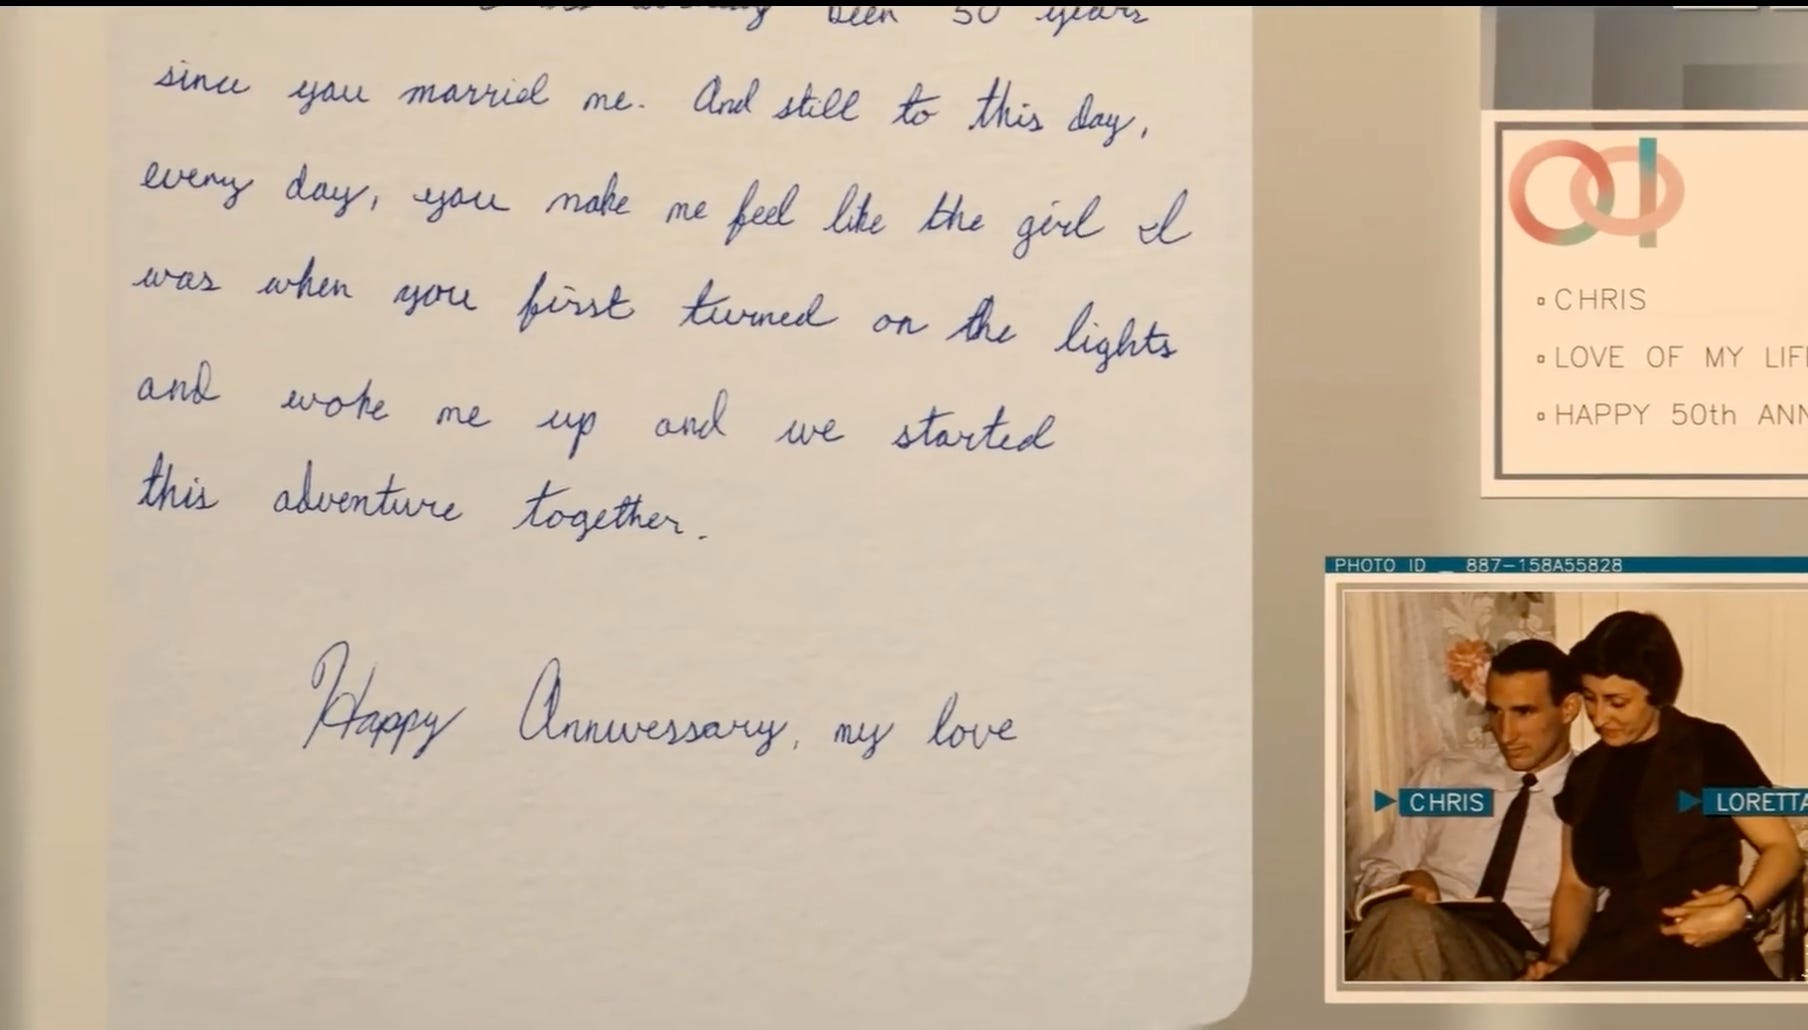 been 50 years
since you married me. And still to this day,
every day, you make me feel like the girl I
was when you first turned on the lights
and woke me up and we started
this adventure together.
Happy Anniversary, my love
CHRIS
LOVE OF MY LIF
HAPPY 50th ANN
PHOTO ID _ 887-158A55828
CHRIS
LORETTA